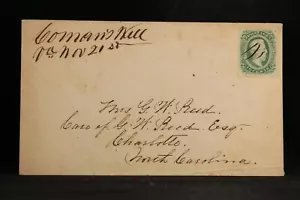 Coman's Well
Va Nov 21st
Mrs G. W. Reed.
Care of G. W. Reed Esq.
Charlotte.
North Carolina.